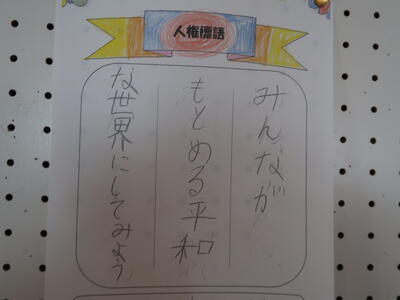 人権標語
みんなが
もとめる平和
な世界にしてみよう